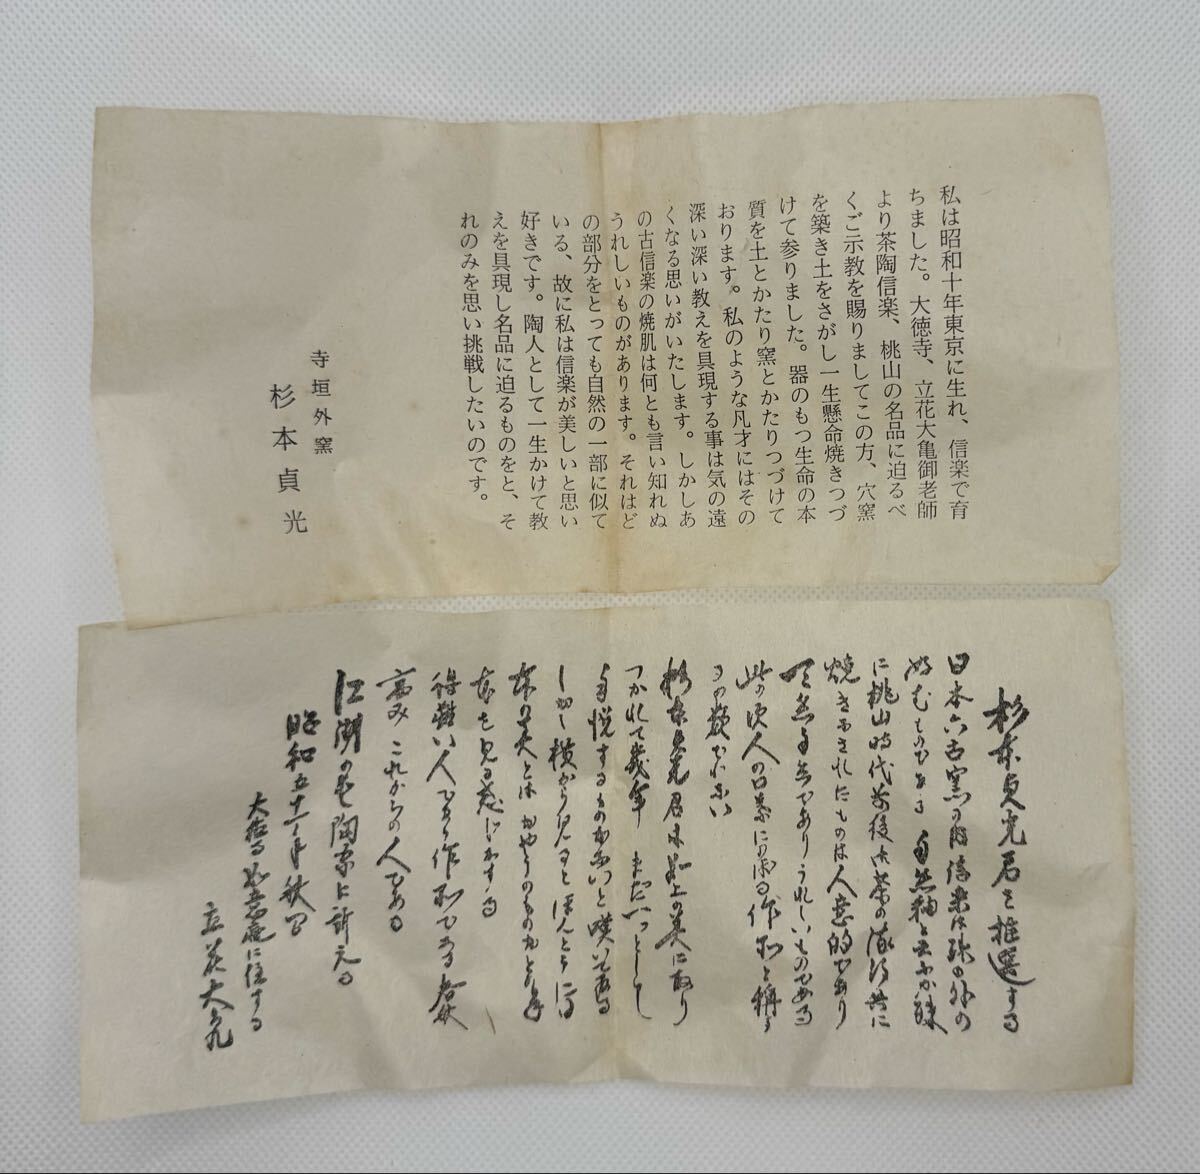 私は昭和十年東京に生れ、信楽で育
ちました。大徳寺、立花大亀御老師
より茶陶信楽、桃山の名品に迫るべ
くご示教を賜りましてこの方、穴窯
を築き土をさがし一生懸命焼きつづ
けて参りました。器のもつ生命の本
質を土とかたり窯とかたりつづけて
おります。私のような凡才にはその
深い深い教えを具現する事は気の遠
くなる思いがいたします。しかしあ
の古信楽の焼肌は何とも言い知れぬ
うれしいものがあります。それはど
の部分をとっても自然の一部に似て
いる、故に私は信楽が美しいと思い
好きです。陶人として一生かけて教
えを具現し名品に迫るものをと、そ
れのみを思い挑戦したいのです。
寺垣外窯
杉本貞光
杉本貞光君を推選する
日本六古窯の内信楽は殊の外の
ものである 自然釉と云ふか
に桃山時代前後 茶の 共に
焼きなされたものは人意的であり
天然自然でありうれしいものである
此の 人の口葉に 作家と稱
るの数少ない
杉本貞光君 此上の美に取り
つかれて幾年 まだ一つとして
自悦するものがないと嘆いている
しかし横から見るとほんとうに
の美とは かやうのものかと
を見る感じがする
得難い人であり作家である
これからの人である
江湖の 陶 に訴える
昭和五十一年秋
大徳寺 如意庵に住する
立花大亀